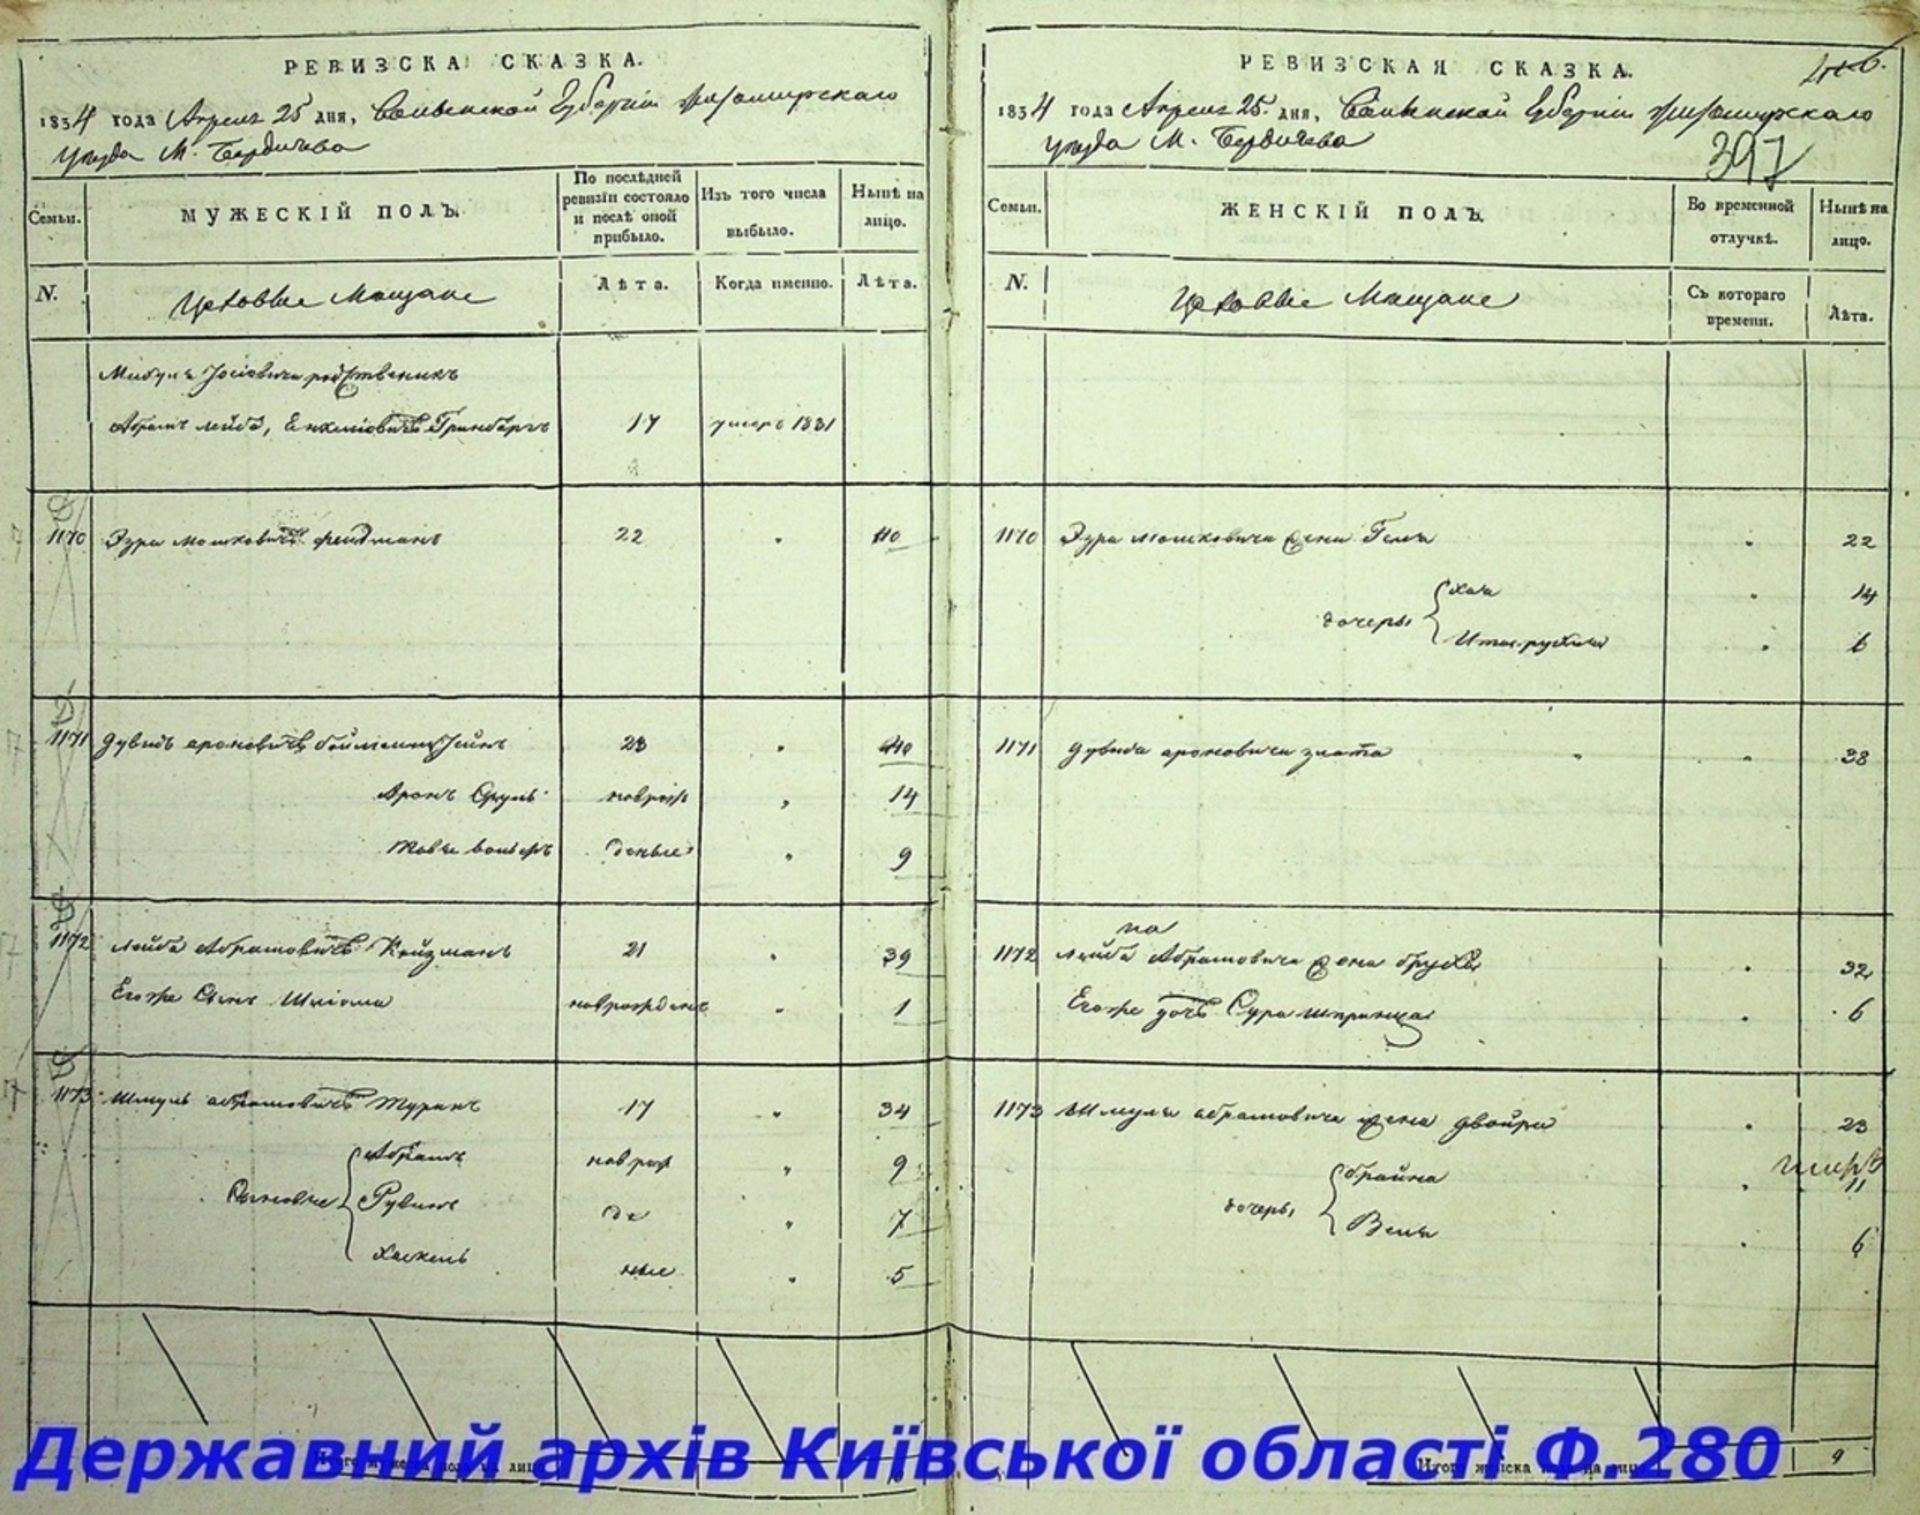 РЕВИЗСКА СКАЗКА.
1834 года Апреля 25 дня, Волынской Губернии Житомирского
уезда М. Бердичева
Семьи.
МУЖЕСКІЙ ПОЛЪ
По послѣдней
ревизіи состояло
и послѣ оной
прибыло.
Изъ того числа
выбыло.
Нынѣ на
лицо.
N.
Цеховые Мещане
Лѣта.
Когда именно.
Лѣта.
родственикъ
Абрамъ лейба, Гринбергъ 17 умеръ 1831
1170 Мошковичъ 22 40
1171 Дувидъ ароновичъ 23 40
Аронъ Сруль новрож 14
деные 9
1172 Лейба Абрамовичъ Койзманъ 21 39
Егоже Сынъ Шлиома новрожденъ 1
1173 Шмуль абрамовичъ Турокъ 17 34
Сыновые
Абрамъ новрож 9
Рувинъ де 7
Хаскель ные 5
РЕВИЗСКАЯ СКАЗКА.
1834 года Апреля 25 дня, Волынской Губернии Житомирскаго
уезда М. Бердичева
397
Семьи.
ЖЕНСКІЙ ПОЛЪ
Во временной
отлучкѣ.
Нынѣ на
лицо.
N.
Цеховые Мещане
Съ котораго
времени.
Лѣта.
1170 Мошковича жена 22
дочеры
Хая 14
6
1171 Дувида ароновича злота 38
1172 Лейба Абрамовича жена 32
Егоже дочь Сура шпринца 6
1173 Шмуля абрамовича жена двойра 23
дочеры
брайна 11
6
Итого женска 9
Державний архів Київської області Ф.280